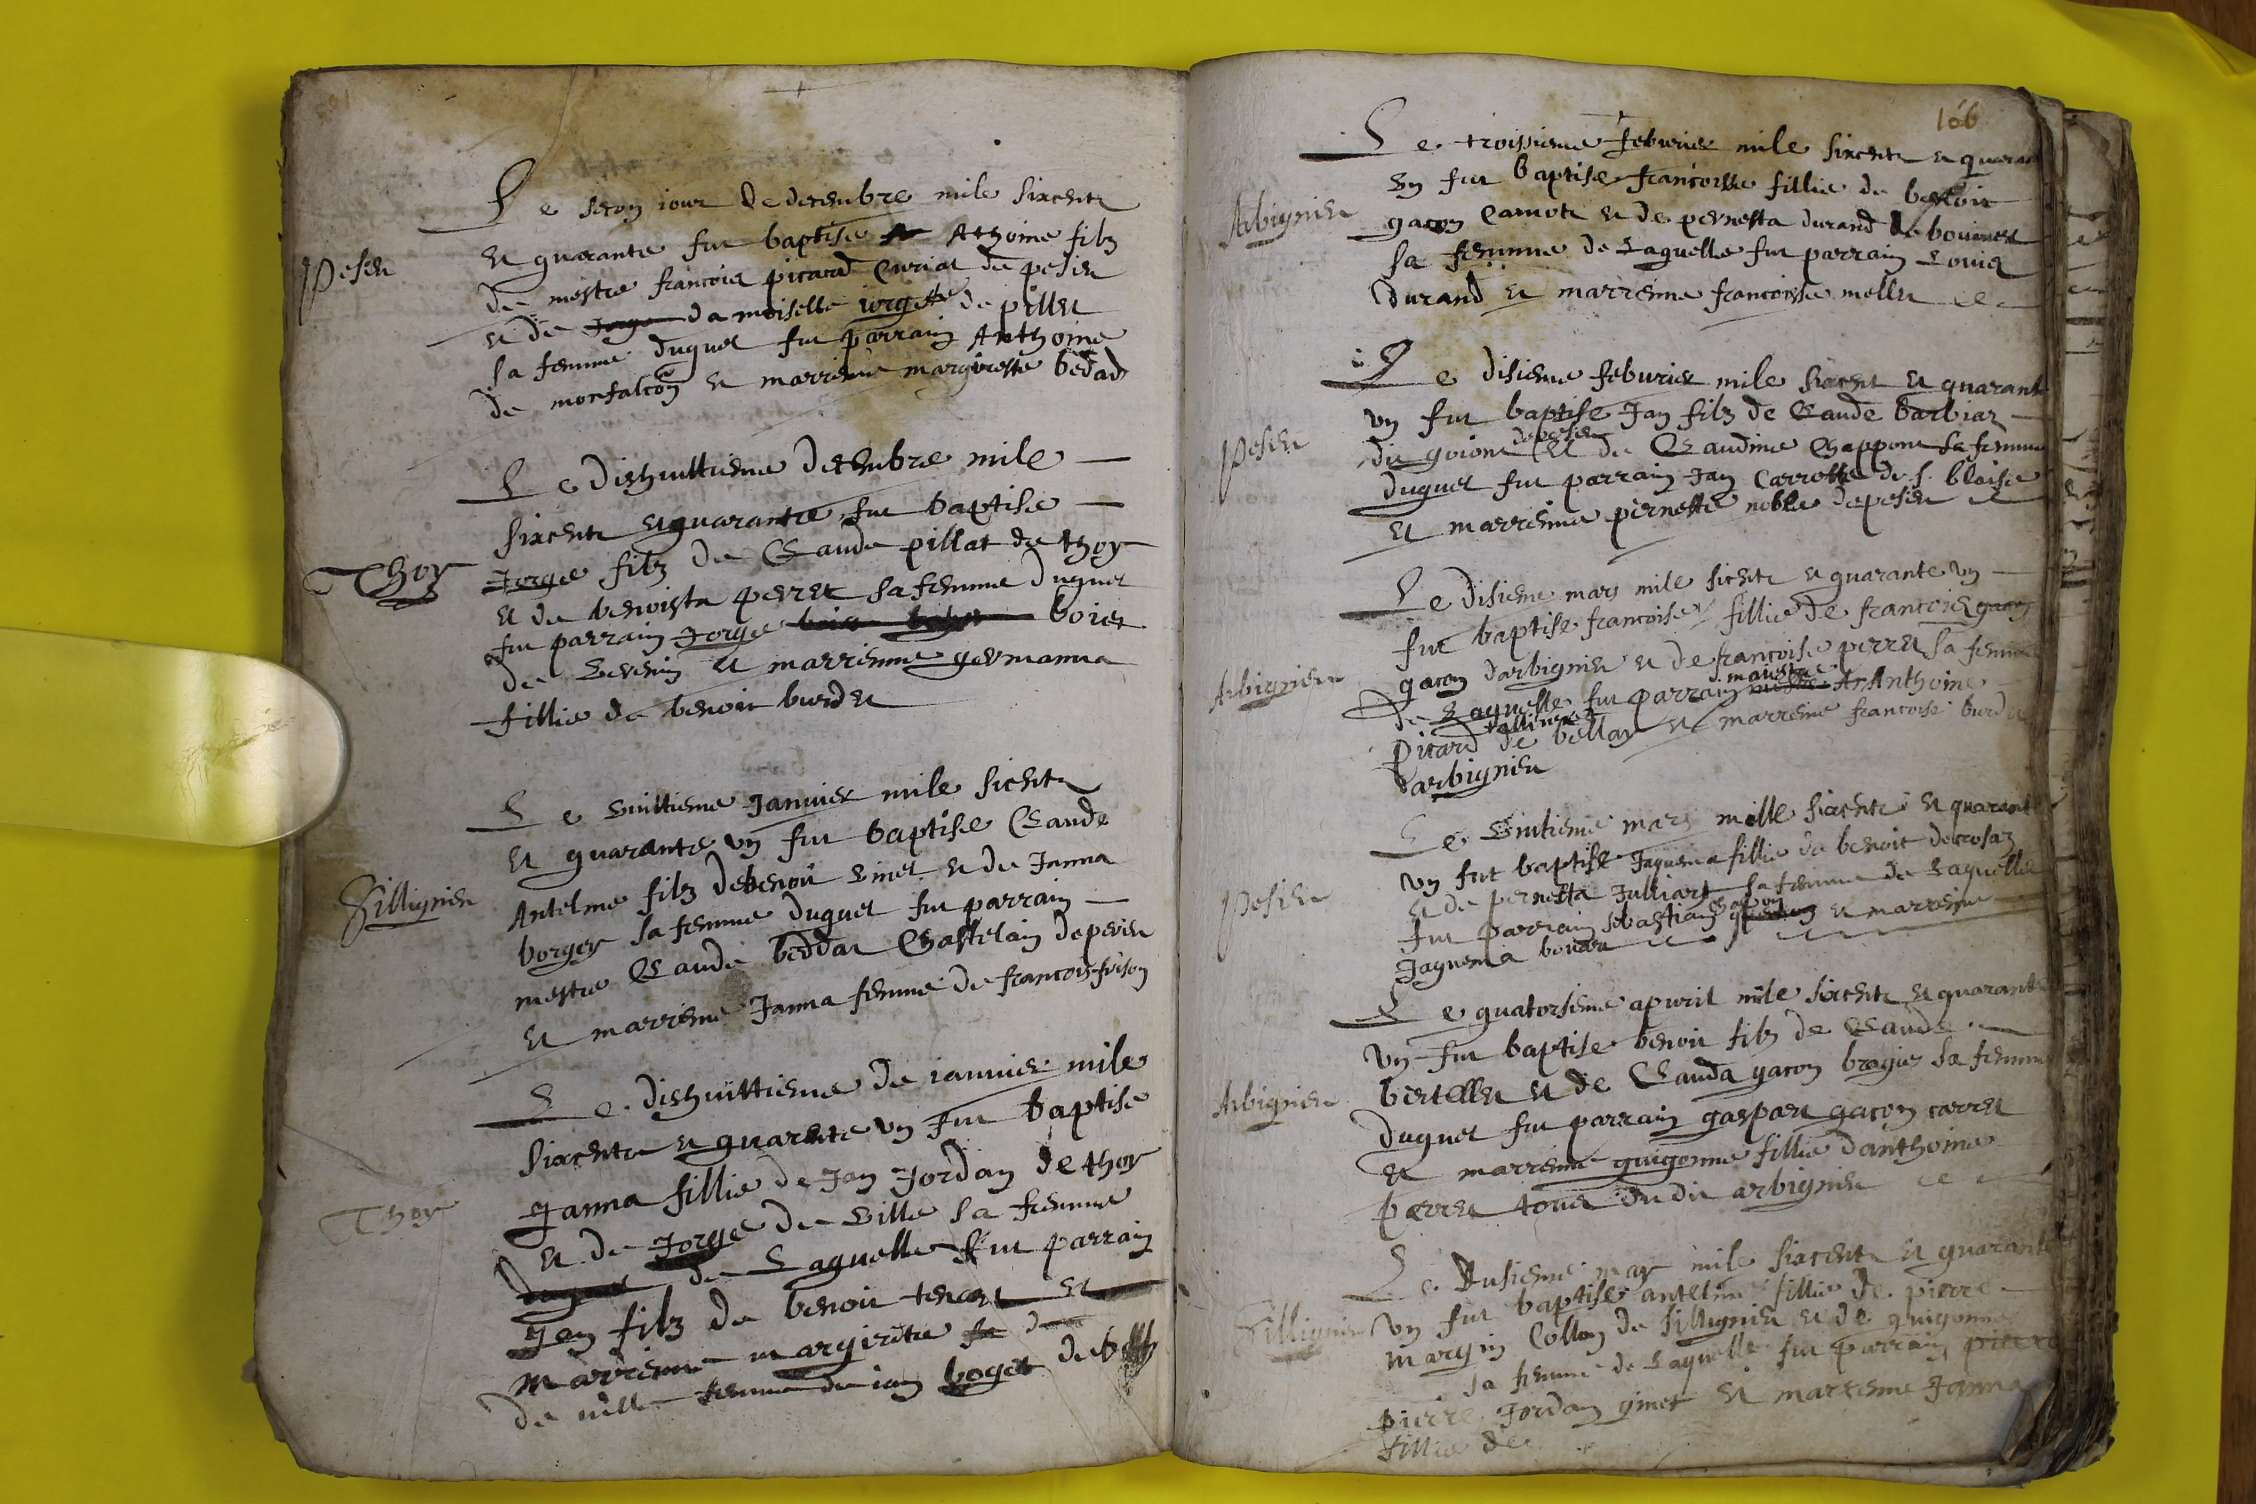 Le secon iour de decembre mile sixcentz
Pesieu
et quarante fut baptise Athoine filz
de mestre francois picard Curial de pesieu
et de damoiselle iorgette de pillet
sa femme duquel fut parrain Anthoine
de monfalcon et marrenne margueritte bedad
Le dishuittieme decembre mile
sixcentz et quarante fut baptise
Thoy
Jorge filz de Claude pillat de thoy
et de benoista perret sa femme duquel
fut parrain Jorge boiet
de et marrenne germanna
fillie de benoit burdet
Le vuittieme Janvier mile sicentz
et quarante un fut baptise Claude
Sillignieu
Antelme filz de benoit vinet et de Janna
borgey sa femme duquel fut parrain
mestre Claude beddat Chastelain de pesieu
et marrenne Janna femme de francois frison
Le dishuittieme de ianvier mile
sixcentz et quarente un fut baptise
Thoy
Janna fillie de Jan Jordan de thoy
et de Jorge de ville sa femme
de Laquelle fut parrain
Jan filz de benoit tenant et
marrenne margirite
de ville femme de ian boget de
166
Le troissieme feburier mile sixcentz et quarante
Arbignieu
un fut baptise francoisse fillie de benoit
gacon Camot et de pernetta durand de
sa femme de Laquelle fut parrain Louis
durand et marrenne francoisse mollet
Le disieme feburier mile sixcent et quarante
un fut baptise Jan filz de Claude barbiar
Pesieu
de pesieu
du goione et de Claudine Chappone sa femme
duquel fut parrain Jan Carrotte de s. blaise
et marrenna pernette noble de pesieu
Le disieme mars mile sicentz et quarante un
fut baptise francoise fillie de francois gacon
Arbignieu
gacon darbignieu et de francoise perret sa femme
de Laquelle fut parrain maistre Anthoine
picard de bellay et marrenne francoise burdet
darbignieu
Le vintieme mars mille sixcentz et quarante
un fut baptise Jaquema fillie de benoit decrosaz
Pesieu
et de pernetta Julliart sa femme de Laquelle
fut parrain sebastian et marrenne
Jaquema
Le quatorsieme apuril mile sixcentz et quarante
un fut baptise benoit filz de Claude
Arbignieu
bertellet et de Clauda gacon bragier sa femme
duquel fut parrain gaspart gacon carret
et marrenne guigonne fillie danthoine
perret tous du dit arbignieu
Le may mile sixcentz et quarante
un fut baptise antelme fillie de pierre
Sillignieu
margin Collon de sillignieu et de guigonne
sa femme de Laquelle fut parrain pierre
pierre Jordan ginet et marrenne Janna
fillie de